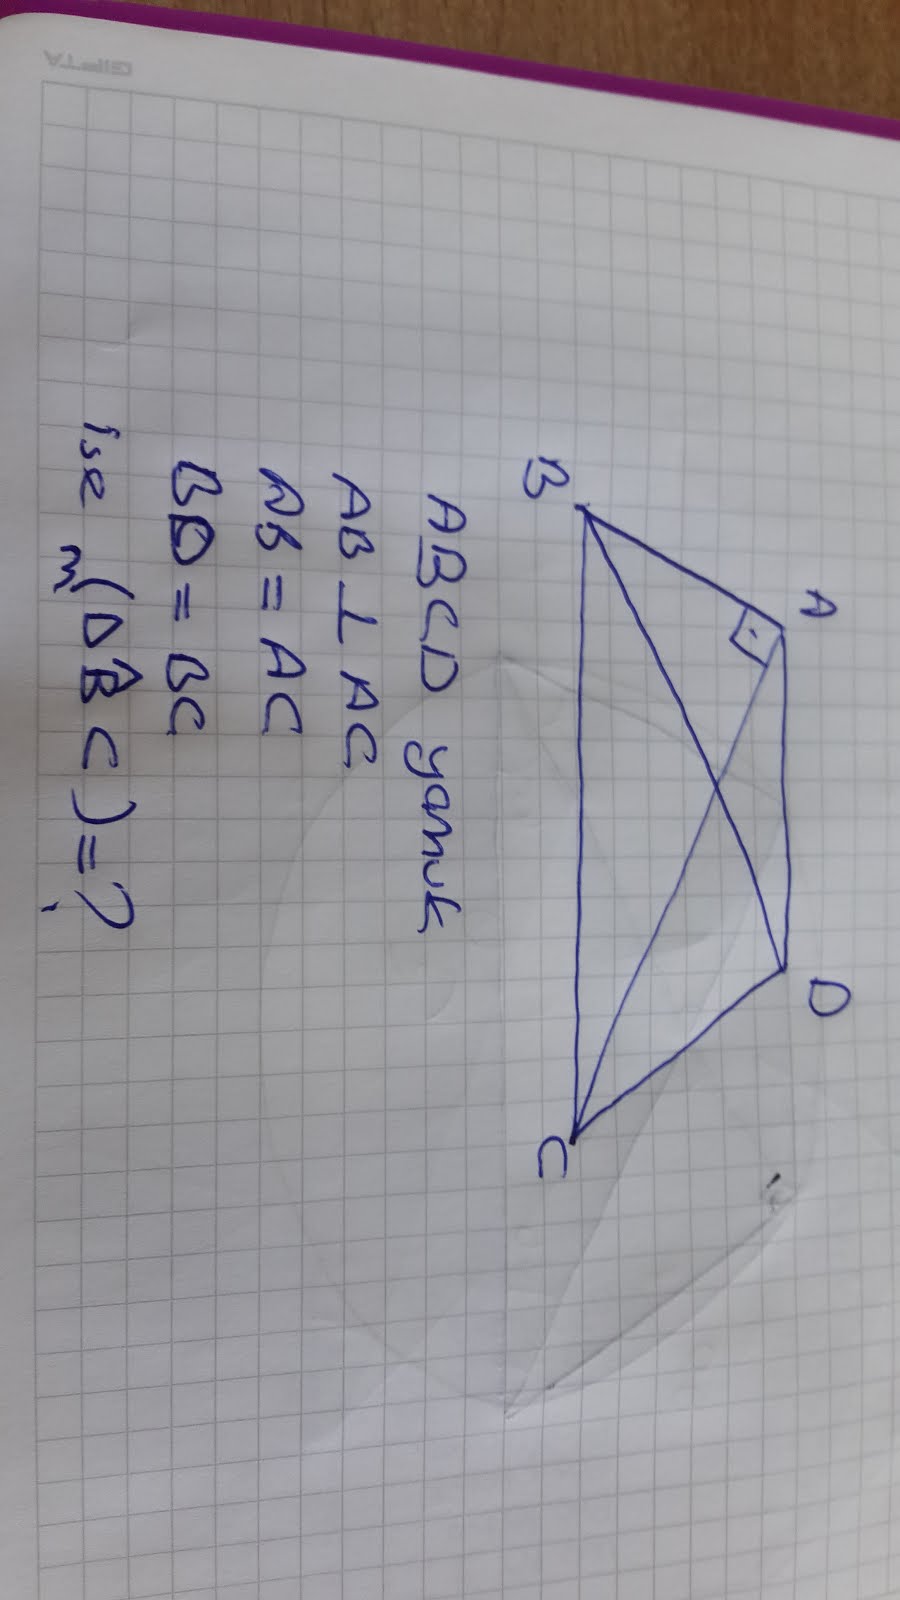 GIPTA
A
D
B
C
ABCD yamuk
AB ⊥ AC
AB = AC
BD = BC
ise m(DB̂C) = ?